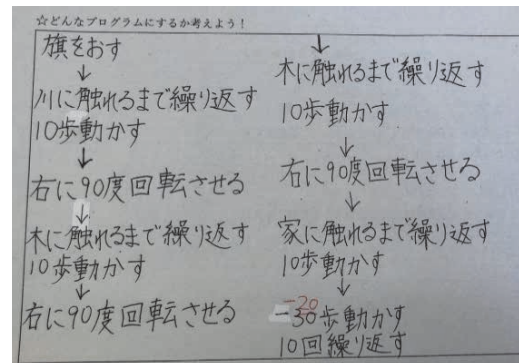 ☆どんなプログラムにするか考えよう！
旗をおす
↓
川に触れるまで繰り返す
10歩動かす
↓
右に90度回転させる
↓
木に触れるまで繰り返す
10歩動かす
↓
右に90度回転させる
↓
木に触れるまで繰り返す
10歩動かす
↓
右に90度回転させる
↓
家に触れるまで繰り返す
10歩動かす
↓
-20
-30歩動かす
10回繰り返す